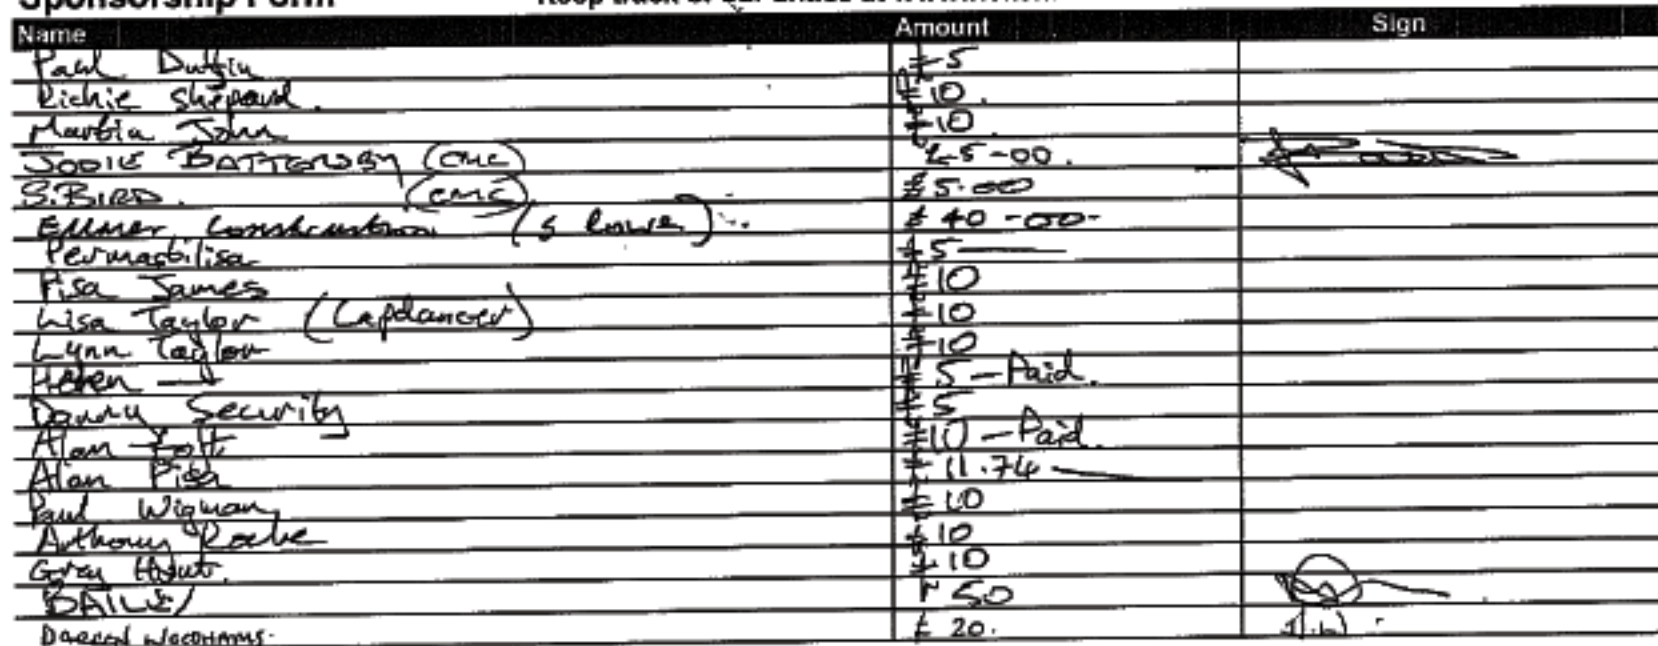 Sponsorship Form
Name Amount Sign
Paul Duffin £5
Richie Shepard. £10.
Martin John £10
JODIE BATTERSBY (CMC) £5-00.
S.BIRD. (CMC) £5.00
Ellmer Construction (S Lowe) £40-00-
Permastilisa £5
Pisa James £10
Lisa Taylor (Lapdancer) £10
Lynn Taylor £10
Helen £5 - Paid.
Danny Security £5
Alan £10 - Paid.
Alan Pisa £11.74
Paul Wigman £10
Anthony Roche £10
Grey £10
BAILEY £50
DARREN WOODHAMS. £20.